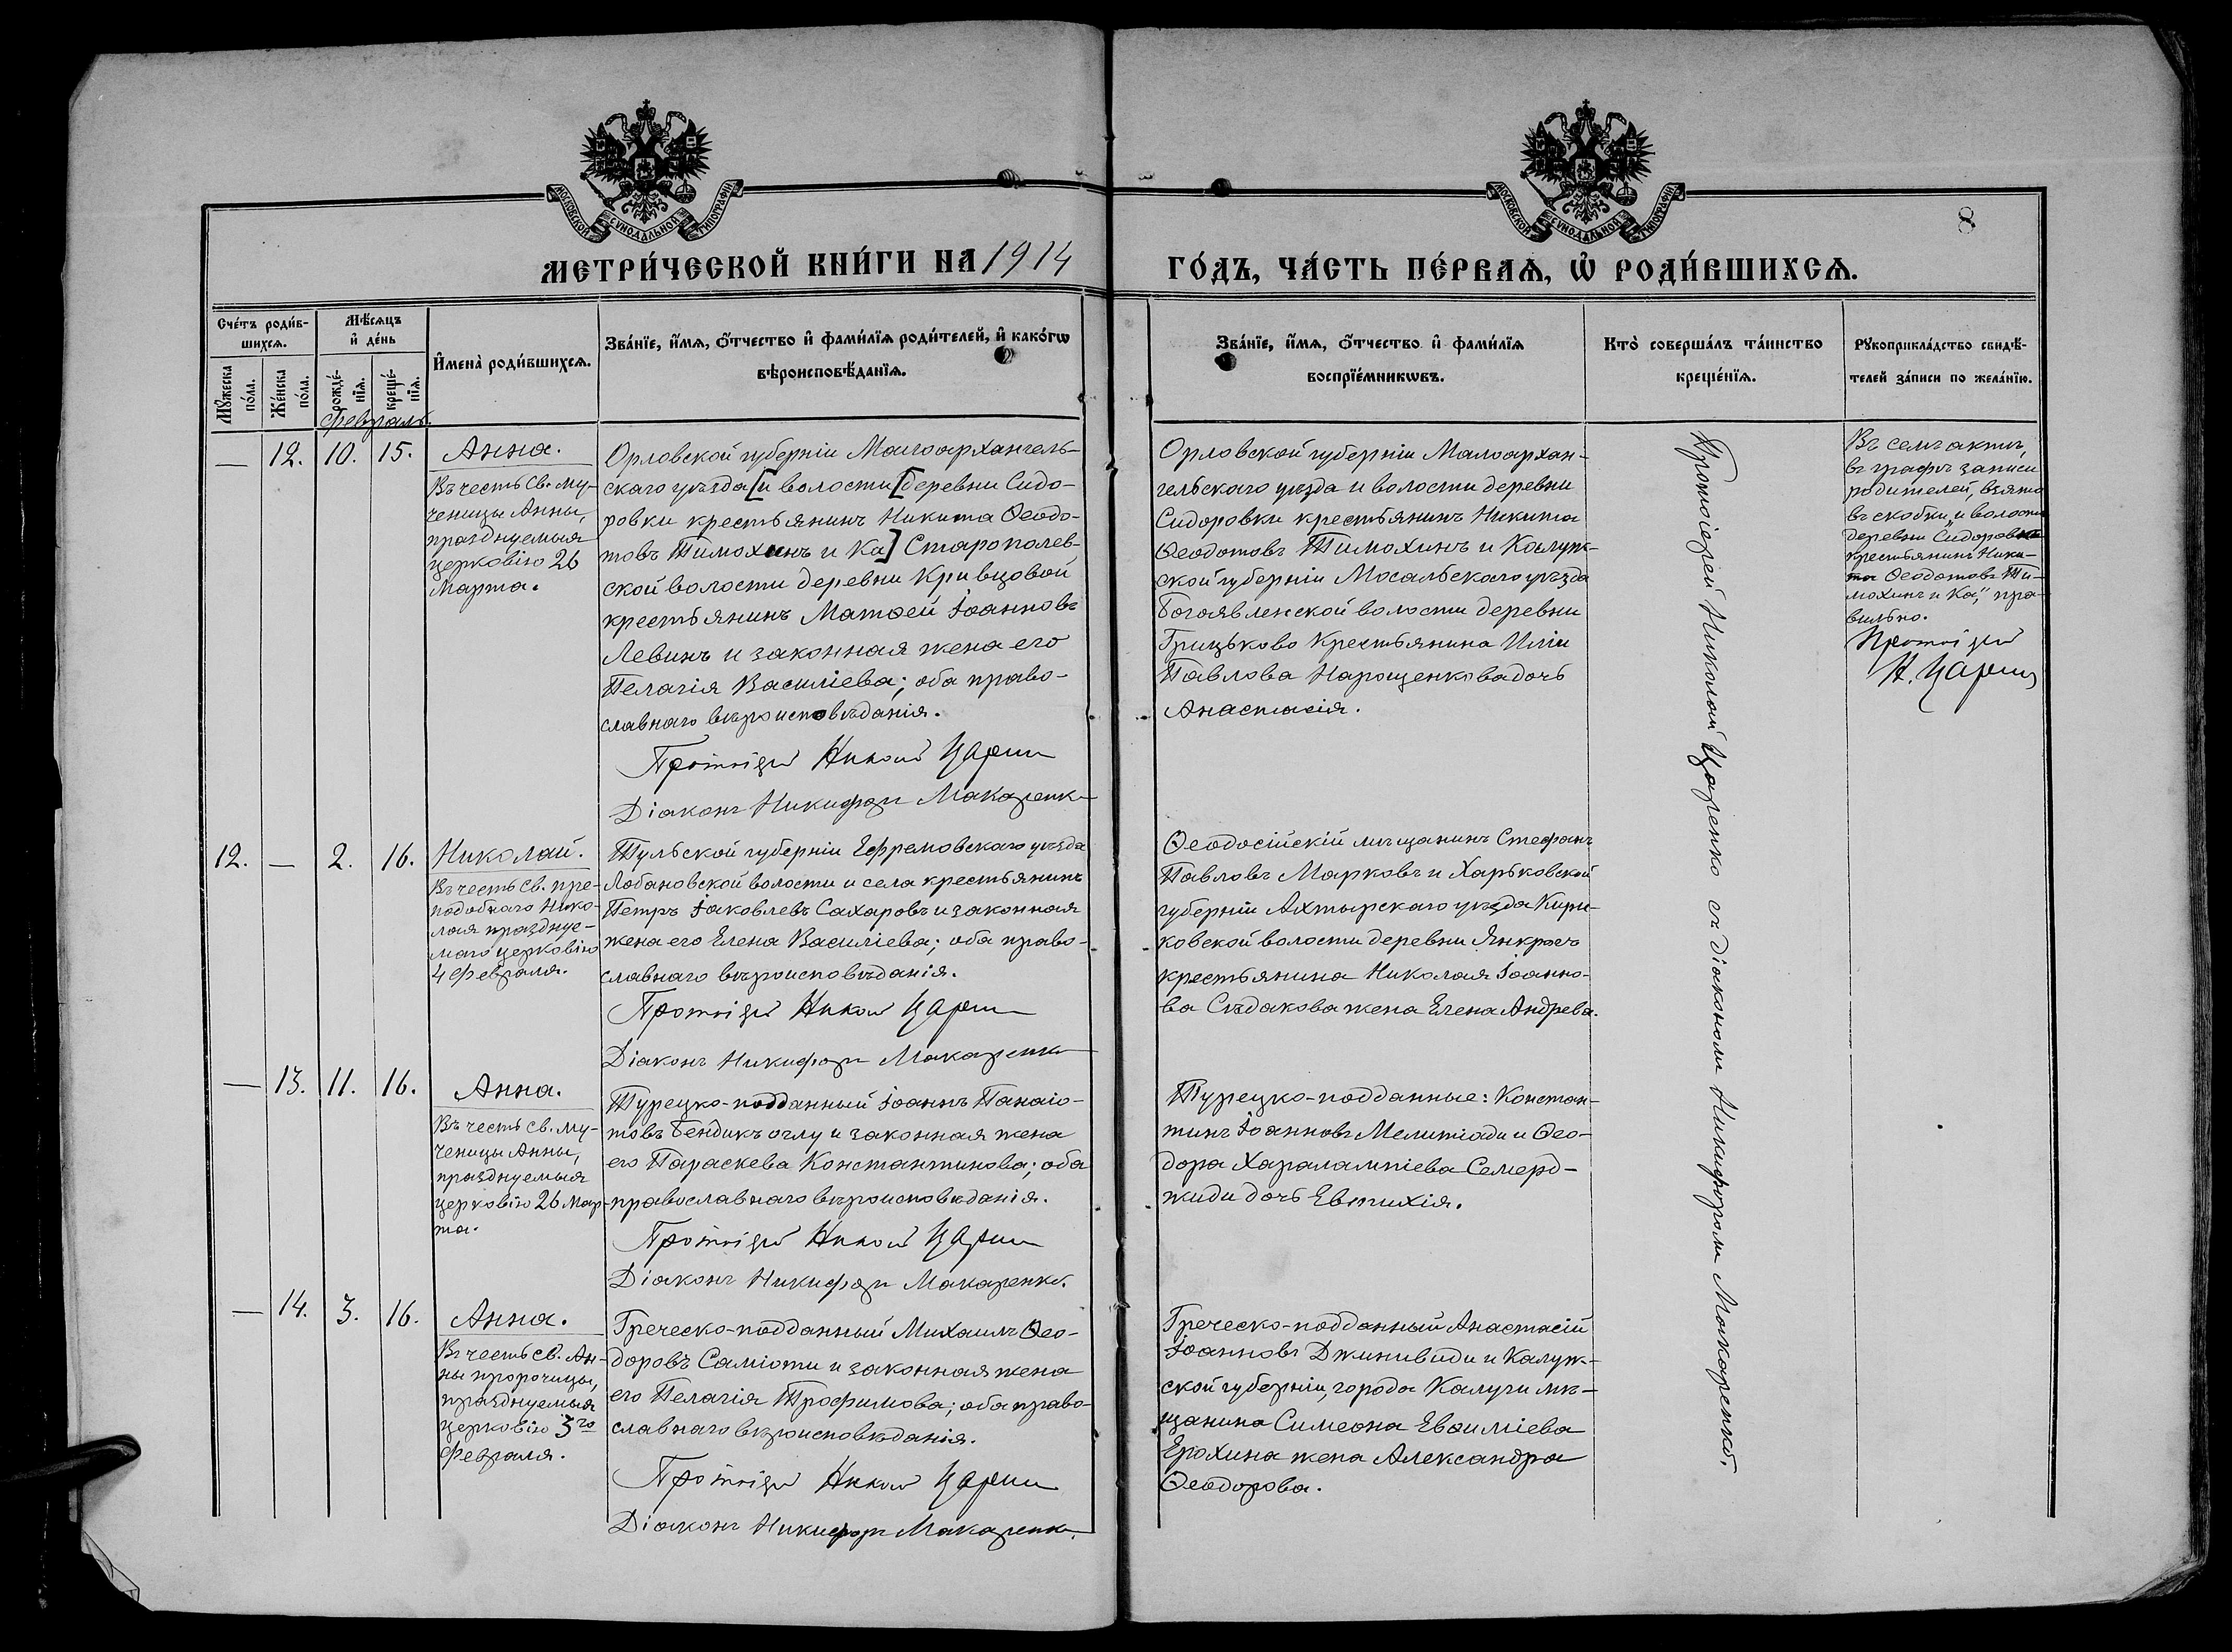 МОСКОВСКОЙ СѴНОДАЛЬНОЙ ТИПОГРАФІИ
МОСКОВСКОЙ СѴНОДАЛЬНОЙ ТИПОГРАФІИ
8
МЕТРИ́ЧЕСКОЙ КНИ́ГИ НА 1914
ГО́ДЪ, ЧА́СТЬ ПЕ́РВАѦ, Ѡ҆ РОДИ́ВШИХСѦ.
Сче́тъ роди́в-
шихсѧ.
Мѣ́сѧцъ
и҆ де́нь
Мꙋ́жеска
по́ла.
Же́нска
по́ла.
рожде́-
нїѧ.
креще́-
нїѧ.
И҆мена̀ роди́вшихсѧ.
Зва́нїе, и҆́мѧ, ѻ҆́тчество и҆ фами́лїѧ роди́телей, и҆ како́гѡ
вѣроисповѣ́данїѧ.
Зва́нїе, и҆́мѧ, ѻ҆́тчество и҆ фами́лїѧ
воспрїе́мникѡвъ.
Кто̀ соверша́лъ та́инство
креще́нїѧ.
Рꙋкоприкла́дство свидѣ́-
телей за́писи по жела́нїю.
Февраль.
— 12. 10. 15. Анна.
Въ честь св. му-
ченицы Анны,
празднуемыя
церковію 26
Марта.
Орловской губерніи Малоархангель-
скаго уѣзда [и волости [деревни Сидо-
ровки крестьянинъ Никита Ѳеодо-
товъ Тимохинъ и Ка] Старополев-
ской волости деревни Кривцовой
крестьянинъ Матѳей Іоанновъ
Левинъ и законная жена его
Пелагія Василіева; оба право-
славнаго вѣроисповѣданія.
Протоіерей Николай Царенко
Діаконъ Никифоръ Макаренко
Орловской губерніи Малоархан-
гельскаго уѣзда и волости деревни
Сидоровки крестьянинъ Никита
Ѳеодотовъ Тимохинъ и Калуж-
ской губерніи Мосальскаго уѣзда
Богоявленской волости деревни
Грицьково крестьянина Иліи
Павлова Нарощенкова дочь
Анастасія.
Протоіерей Николай Царенко съ діакономъ Никифоромъ Макаренко.
Въ семъ актѣ,
въ графѣ записи
родителей, взято
въ скобки „и волости
деревни Сидоровки
крестьянинъ Ники-
та Ѳеодотовъ Ти-
мохинъ и Ка", пра-
вильно.
Протоіерей
Н. Царенко
12. — 2. 16. Николай.
Въ честь св. пре-
подобнаго Нико-
лая праздну-
емаго церковію
4 Февраля.
Тульской губерніи Ефремовскаго уѣзда
Лобановской волости и села крестьянинъ
Петръ Іаковлевъ Сахаровъ и законная
жена его Елена Василіева; оба право-
славнаго вѣроисповѣданія.
Протоіерей Николай Царенко
Діаконъ Никифоръ Макаренко
Ѳеодосійскій мѣщанинъ Стефанъ
Павловъ Марковъ и Харьковской
губерніи Ахтырскаго уѣзда Кири-
ковской волости деревни
крестьянина Николая Іоанно-
ва Сѣдакова жена Елена Андрева.
— 13. 11. 16. Анна.
Въ честь св. му-
ченицы Анны,
празднуемыя
церковію 26 Мар-
та.
Турецко-подданный Іоаннъ Панаіо-
товъ Бендикъ оглу и законная жена
его Параскева Константинова; оба
православнаго вѣроисповѣданія.
Протоіерей Николай Царенко
Діаконъ Никифоръ Макаренко.
Турецко-подданные: Констан-
тинъ Іоанновъ Мелитіади и Ѳео-
дора Харалампіева Семерд-
жиди дочь Евтихія.
— 14. 3. 16. Анна.
Въ честь св. Ан-
ны пророчицы,
празднуемыя
церковію 3го
Февраля.
Греческо-подданный Михаилъ Ѳео-
доровъ Саміоти и законная жена
его Пелагія Трофимова; оба право-
славнаго вѣроисповѣданія.
Протоіерей Николай Царенко
Діаконъ Никифоръ Макаренко.
Греческо-подданный Анастасій
Іоанновъ Дженивиди и Калуж-
ской губерніи, города Калуги мѣ-
щанина Симеона Евѳиміева
Ерохина жена Александра
Ѳеодорова.